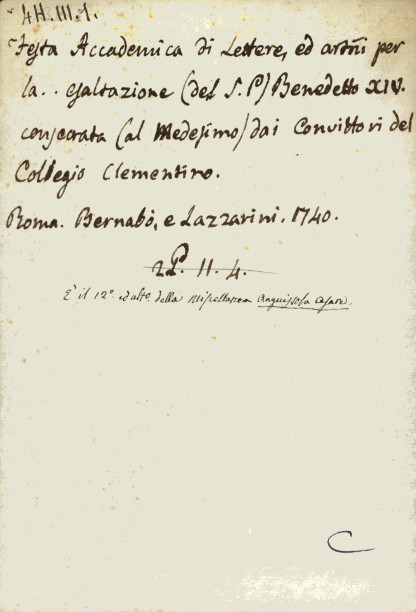 4H.III.1.
Festa Accademica di Lettere, ed armi per
la . . esaltazione (del S. P.) Benedetto XIV.
consecrata (al Medesimo) dai Convittori del
Collegio Clementino.
Roma. Bernabò, e Lazzarini. 1740.
2P. 11. 4.
È il 12° della Miscellanea Anguissola Cesare.
C